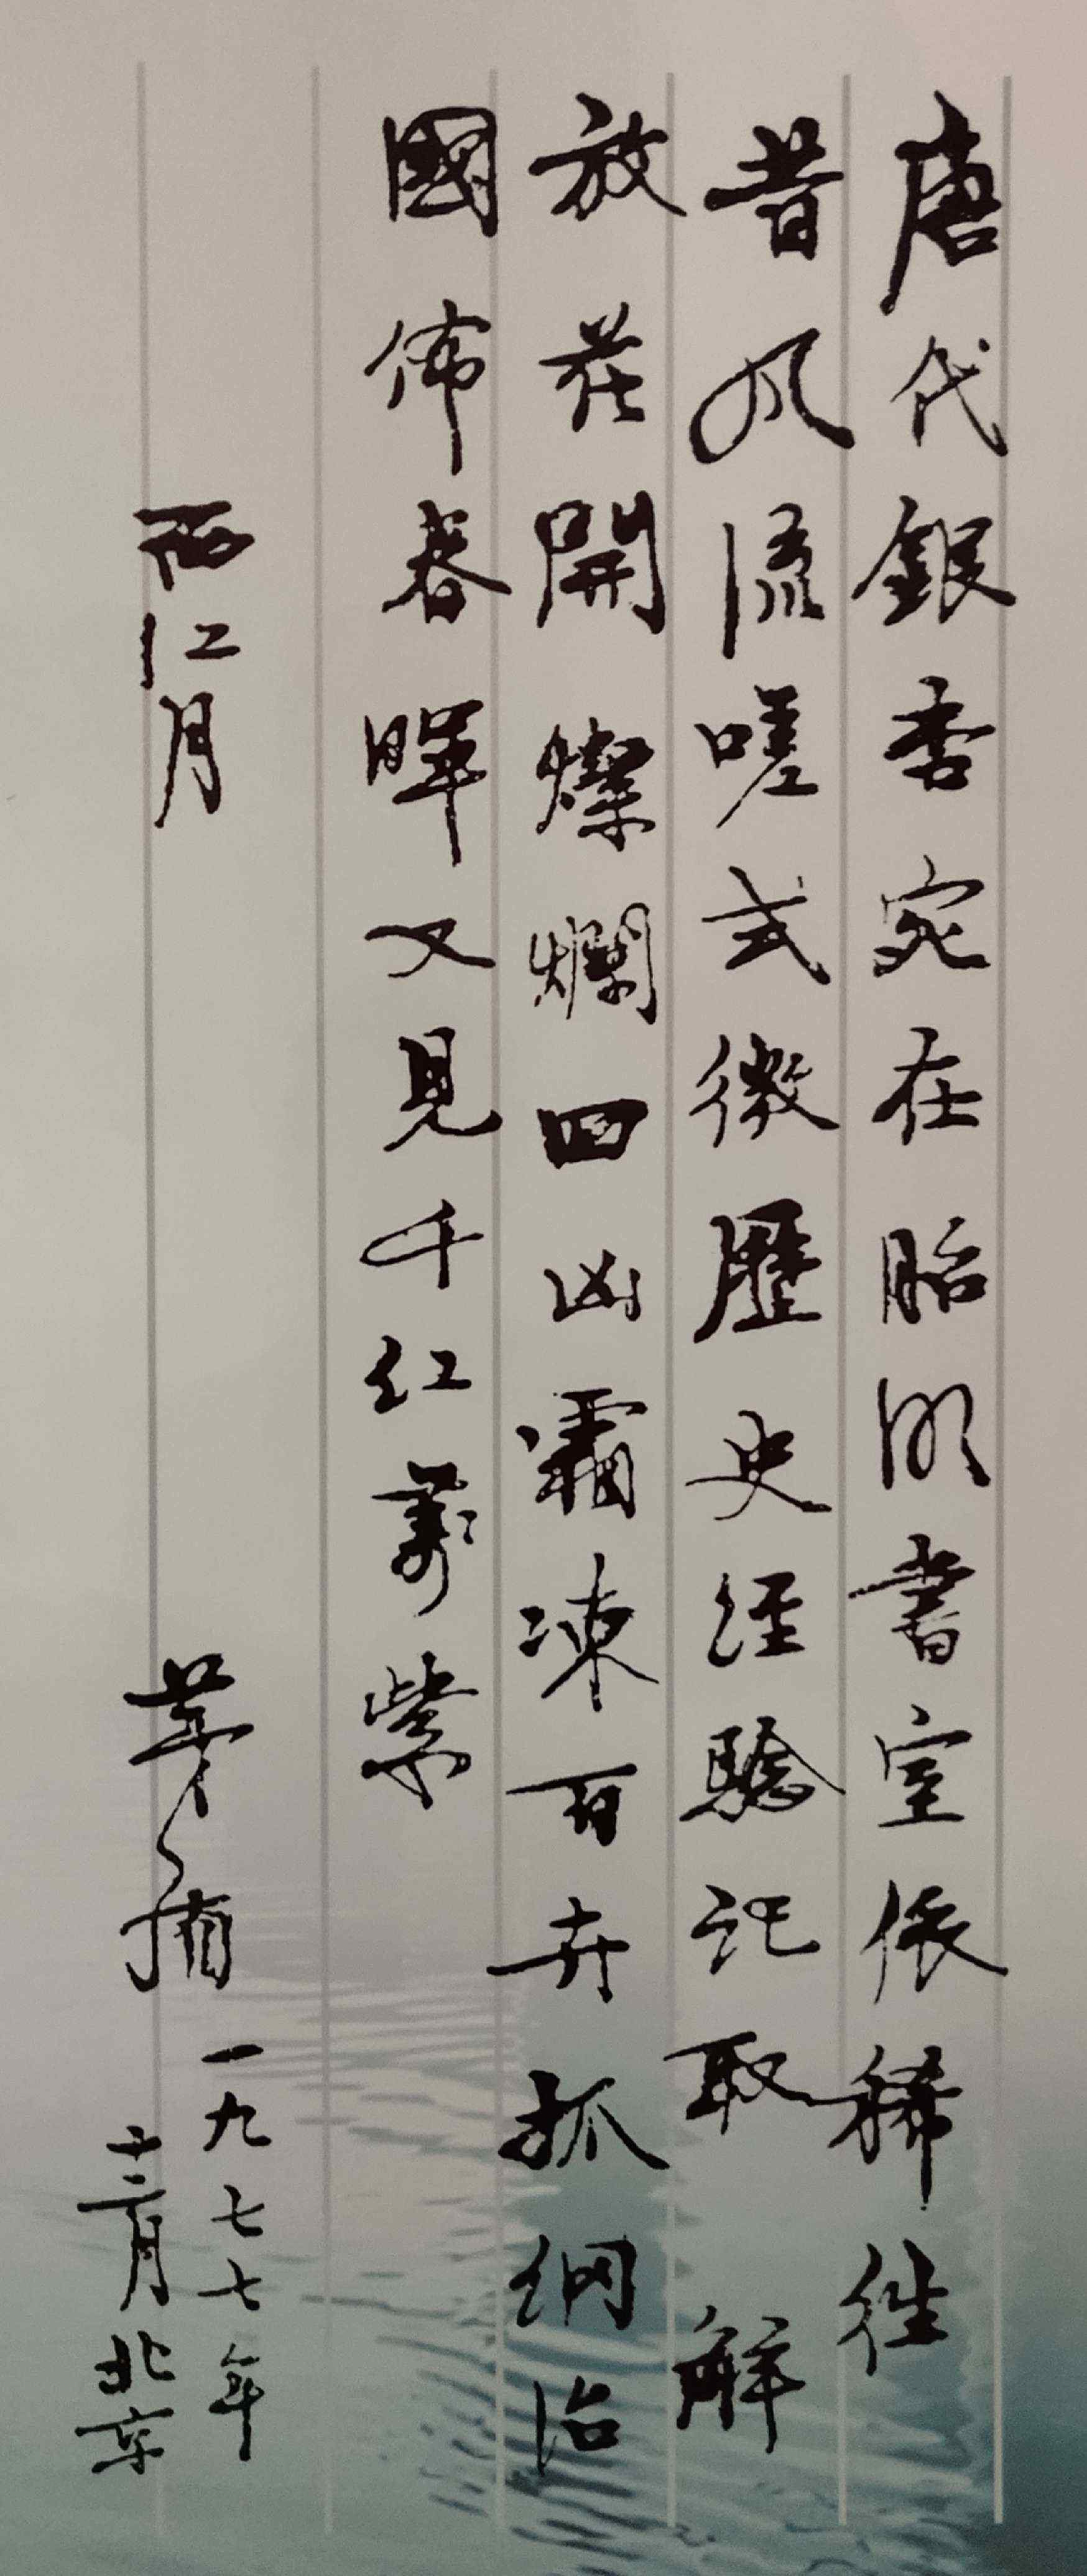 唐代銀杏宛在昭明書室依稀往
昔風流嗟式微歷史經驗記取解
放花開燦爛四凶霜凍百卉抓綱治
國佈春暉又見千红萬紫
西江月
茅盾
一九七七年
十二月北京